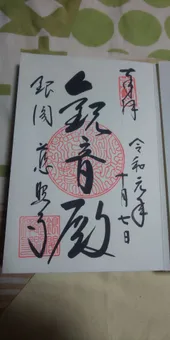 奉拝
令和元年
十一月七日
観音殿
銀閣 慈照寺